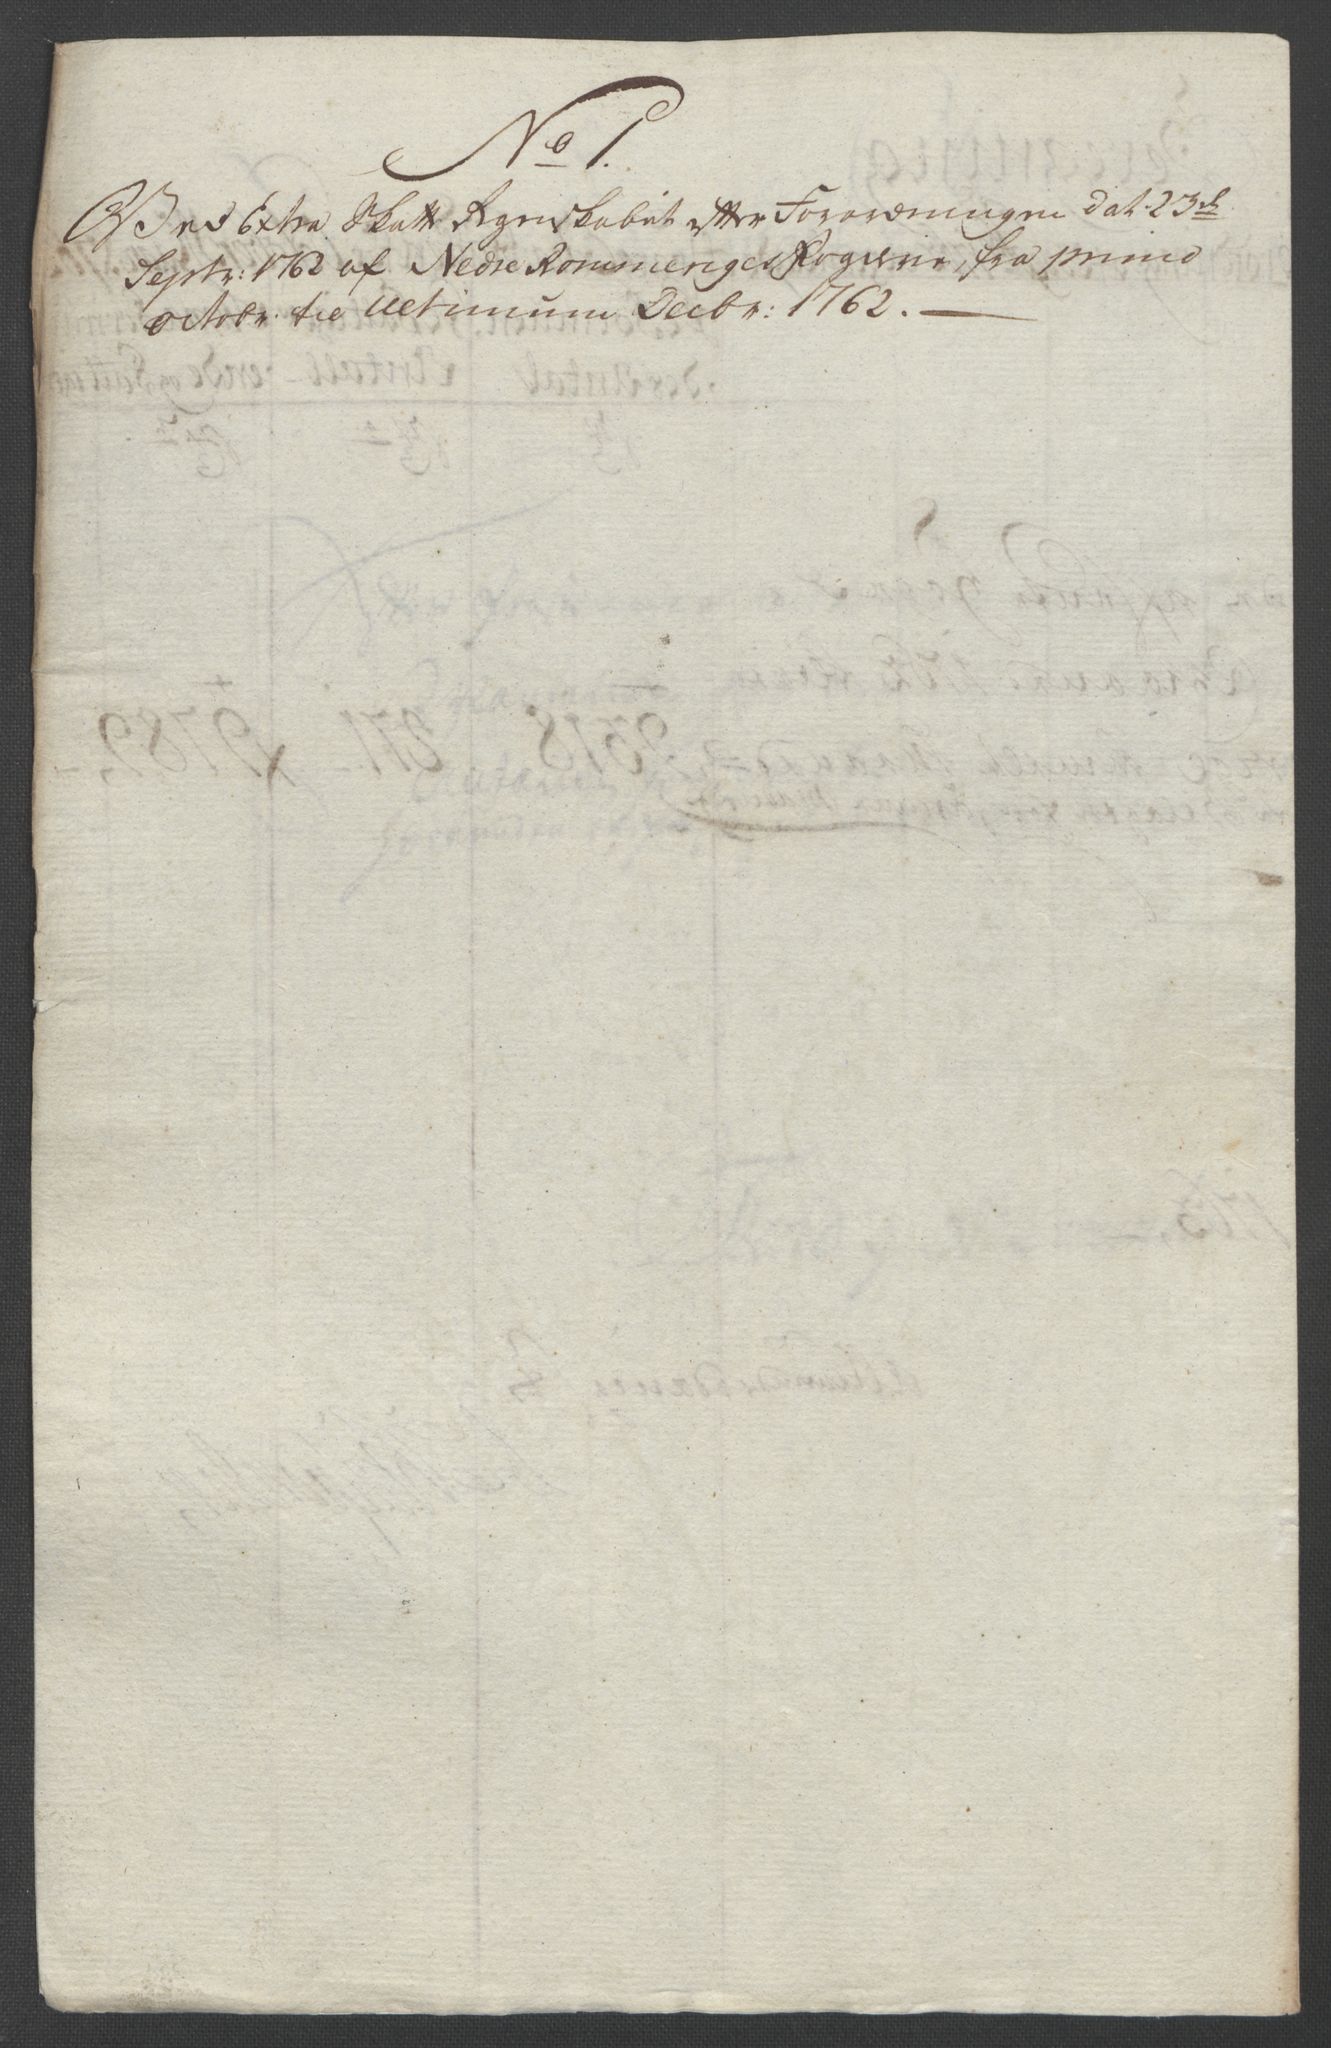 No 1.
Ved Extra Skatte Regenskabet efter Forordningen dat. 23de
Septr: 1762 af Nedre Rommeriges Fogderie, fra primo
octobr. til Ultimum Decbr: 1762. —